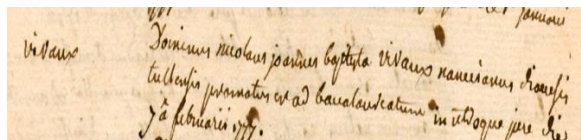 januarii
vivaux
Dominus nicolaus joannes baptista vivaux nanceianus dioecesis
tullensis promotus est ad baccalaureatum in utroque jure die
7â februarii 1777.